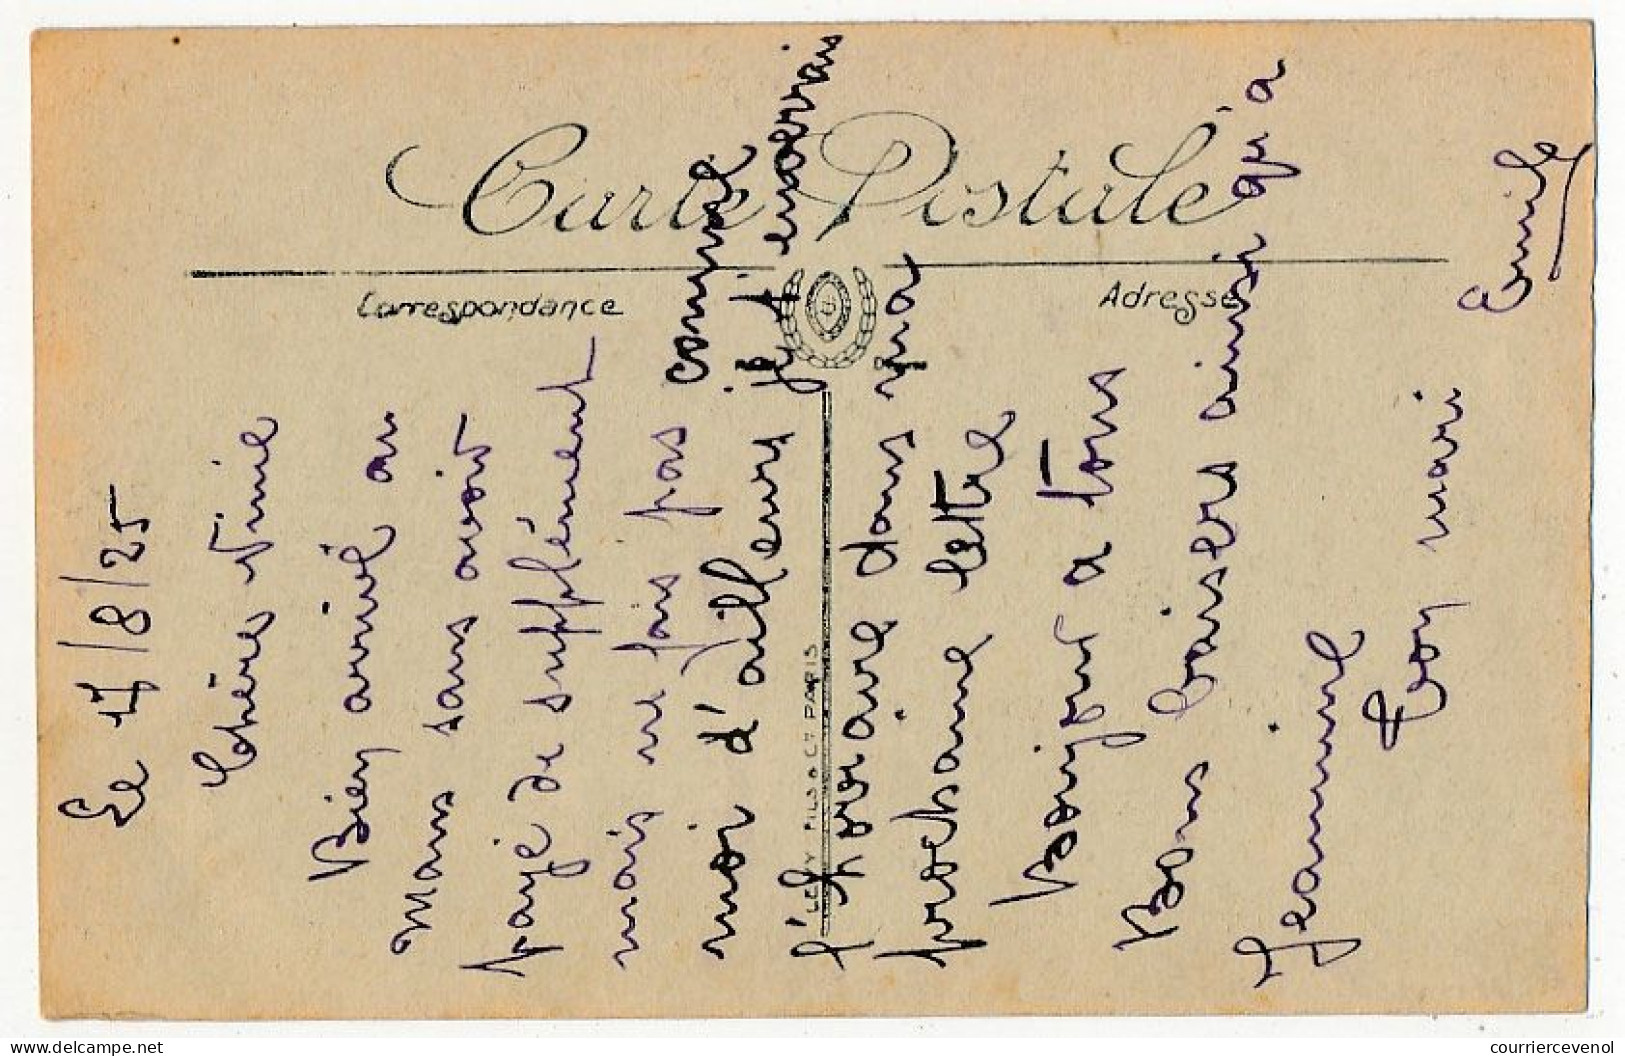 Carte Postale
Correspondance
Adresse
LEVY FILS & Cie PARIS
Le 17/8/25
Chère Ninie
Bien arrivé au
Mans sans avoir
payé de supplément
mais ne fais pas comme
moi d'ailleurs je t'enverrais
l'horaire dans ma
prochaine lettre
Bonjour a tous
Bons baisers ainsi qu'a
Jeannine
Ton mari
Emile
delcampe.net
courriercevenol